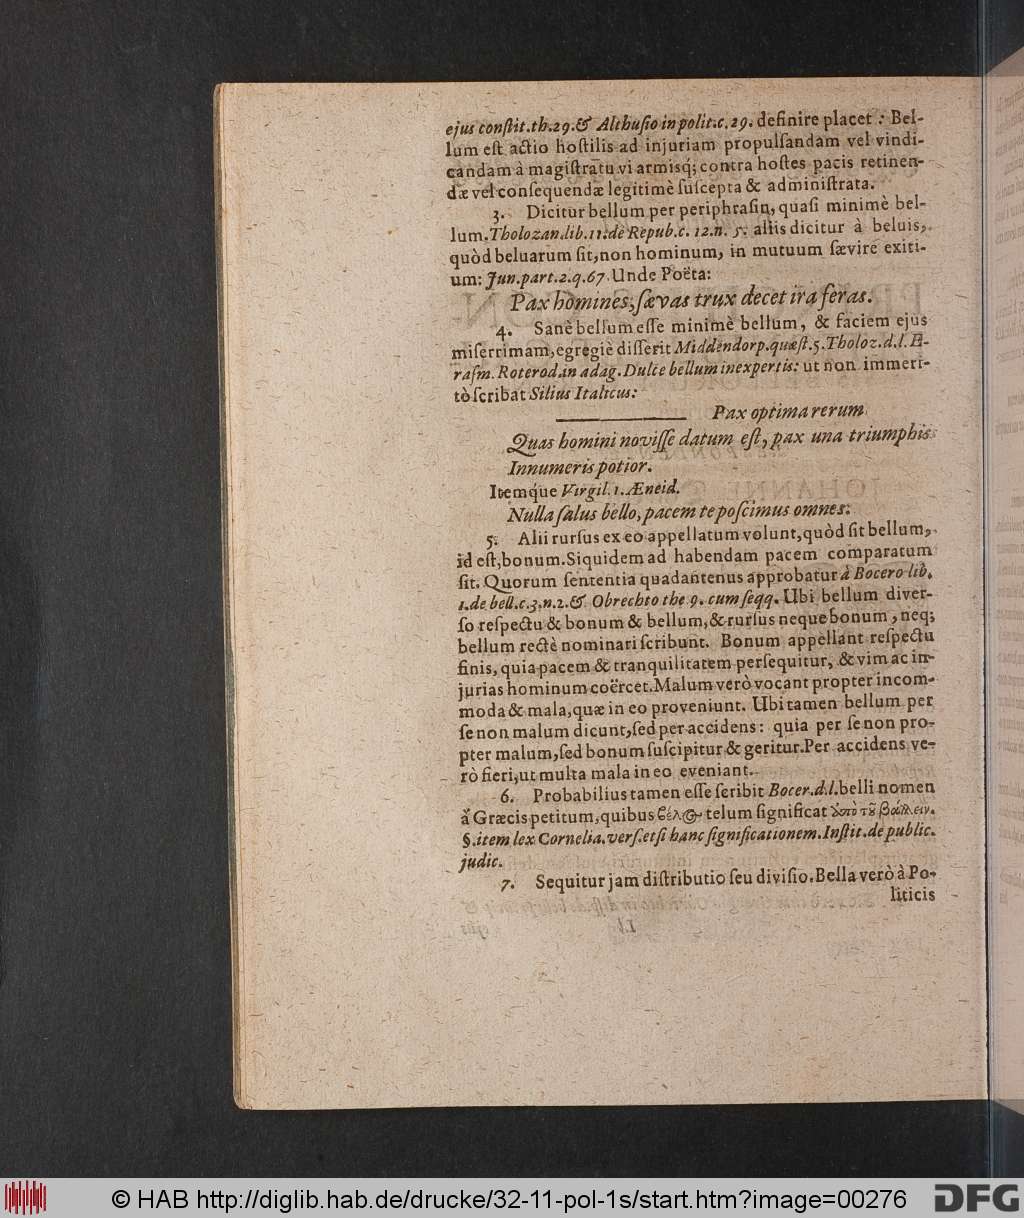 ejus conſtit.th.29.& Althuſio in polit.c.29. definire placet : Bel-
lum eſt actio hoſtilis ad injuriam propulſandam vel vindi-
candam à magiſtratu vi armisq́; contra hoſtes pacis retinen-
dæ vel conſequendæ legitimè ſuſcepta & adminiſtrata.
3. Dicitur bellum per periphraſin, quaſi minimè bel-
lum. Tholozan.lib.11.de Repub.c. 12.n. 5. aliis dicitur à beluis,
quòd beluarum ſit, non hominum, in mutuum ſævire exiti-
um: Jun.part.2.q.67 Unde Poëta:
Pax homines, ſævas trux decet ira feras.
4. Sanè bellum eſſe minimè bellum, & faciem ejus
miſerrimam, egregiè diſſerit Middendorp.quæſt.5.Tholoz.d.l.E-
raſm.Roterod.in adag.Dulce bellum inexpertis: ut non immeri-
tò ſcribat Silius Italicus:
Pax optima rerum
Quas homini noviſſe datum eſt, pax una triumphis
Innumeris potior.
Itemq́ue Virgil.1.Æneid.
Nulla ſalus bello, pacem te poſcimus omnes:
5. Alii rurſus ex eo appellatum volunt, quòd ſit bellum,
id eſt, bonum. Siquidem ad habendam pacem comparatum
ſit. Quorum ſententia quadantenus approbatur à Bocero lib.
1.de bell.c.3.n.2.& Obrechto the 9. cum ſeqq. Ubi bellum diver-
ſo reſpectu & bonum & bellum, & rurſus neque bonum, neq;
bellum rectè nominari ſcribunt. Bonum appellant reſpectu
finis, quia pacem & tranquilitatem perſequitur, & vim ac in-
jurias hominum coërcet. Malum verò vocant propter incom-
moda & mala, quæ in eo proveniunt. Ubi tamen bellum per
ſe non malum dicunt, ſed per accidens: quia per ſe non pro-
pter malum, ſed bonum ſuſcipitur & geritur. Per accidens ve-
rò fieri, ut multa mala in eo eveniant.
6. Probabilius tamen eſſe ſcribit Bocer.d.l. belli nomen
à Græcis petitum, quibus βέλος telum ſignificat ἀπὸ τοῦ βάλλειν.
§.item lex Cornelia.verſ.etſi hanc ſignificationem.Inſtit.de public.
judic.
7. Sequitur jam diſtributio ſeu diviſio. Bella verò à Po-
liticis
© HAB http://diglib.hab.de/drucke/32-11-pol-1s/start.htm?image=00276
DFG